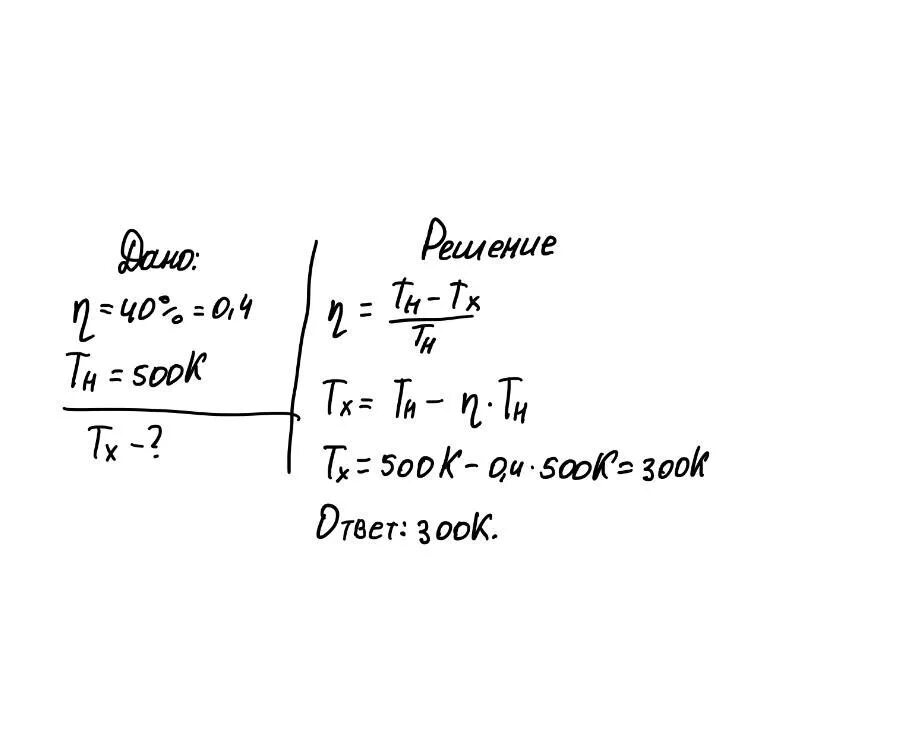 Дано:
η = 40% = 0,4
Tн = 500К
Tх - ?
Решение
η = (Tн - Tх) / Tн
Tх = Tн - η · Tн
Tх = 500К - 0,4 · 500К = 300К
Ответ: 300К.